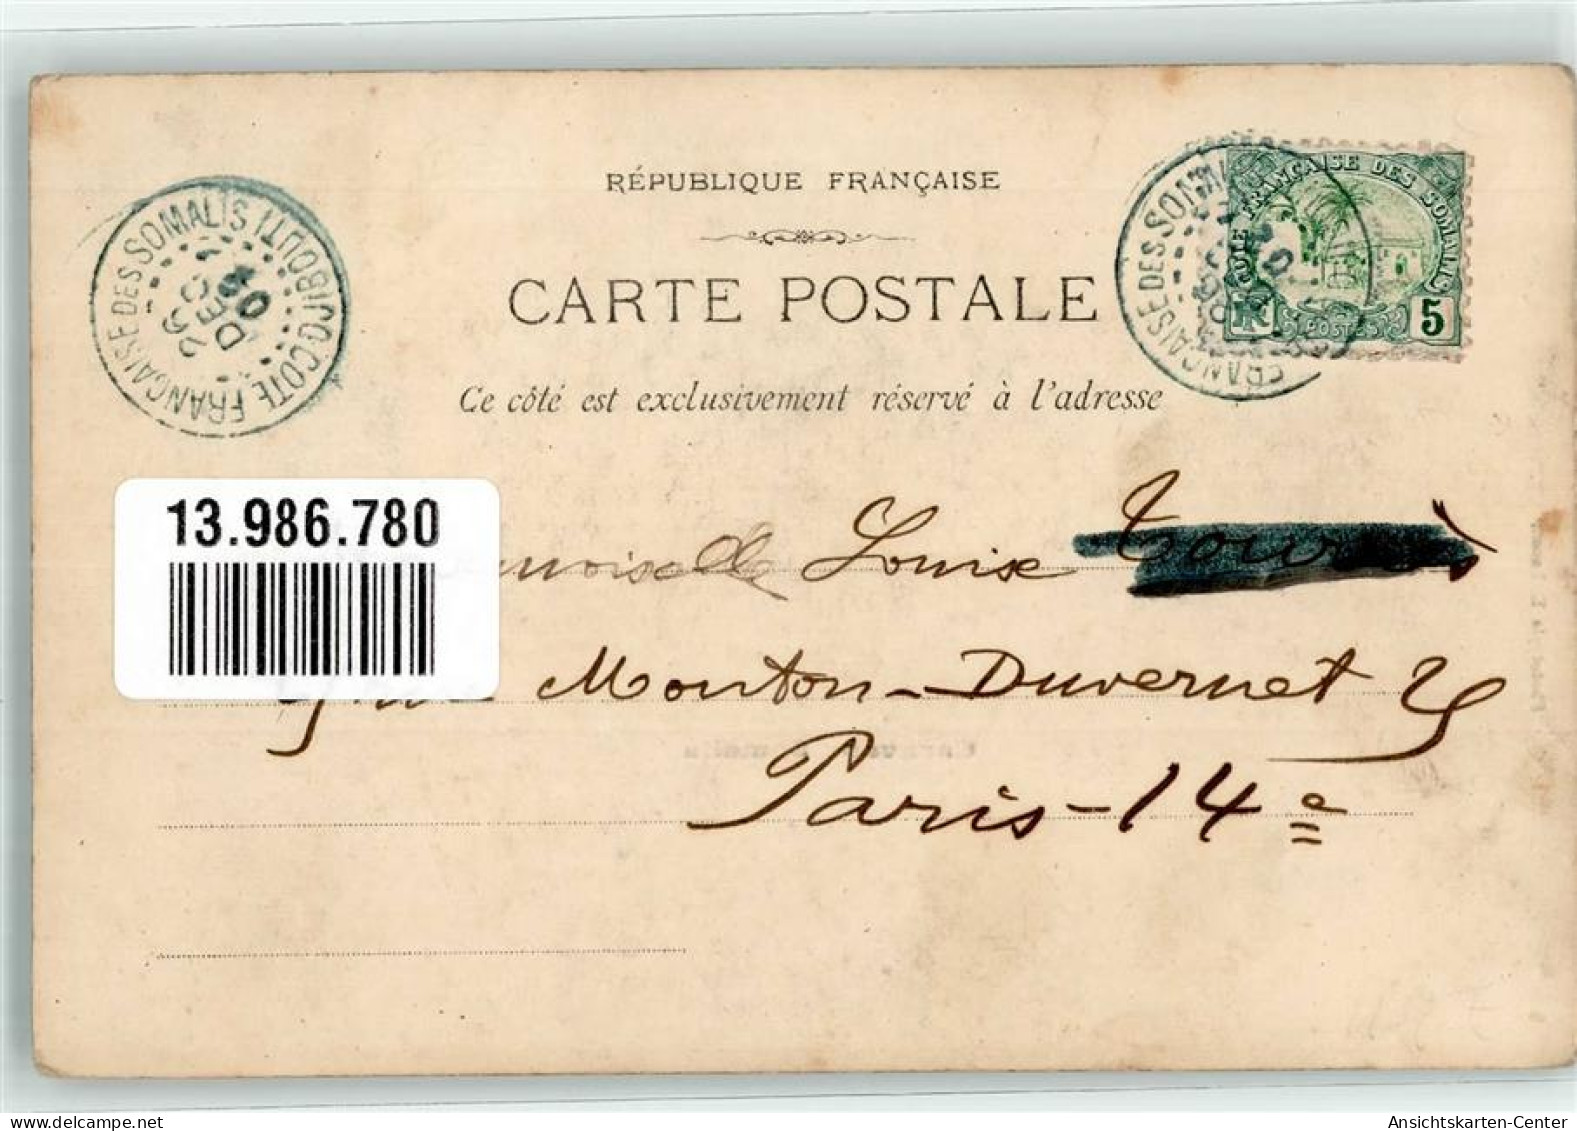 RÉPUBLIQUE FRANÇAISE
CARTE POSTALE
Ce côté est exclusivement réservé à l'adresse
CÔTE FRANÇAISE DES SOMALIS DJIBOUTI
DEC
CÔTE FRANÇAISE DES SOMALIS
POSTES
5
FRANÇAISE DES SOMALIS
13.986.780
moiselle Louise
Mouton-Duvernet
Paris-14e
delcampe.net
Ansichtskarten-Center